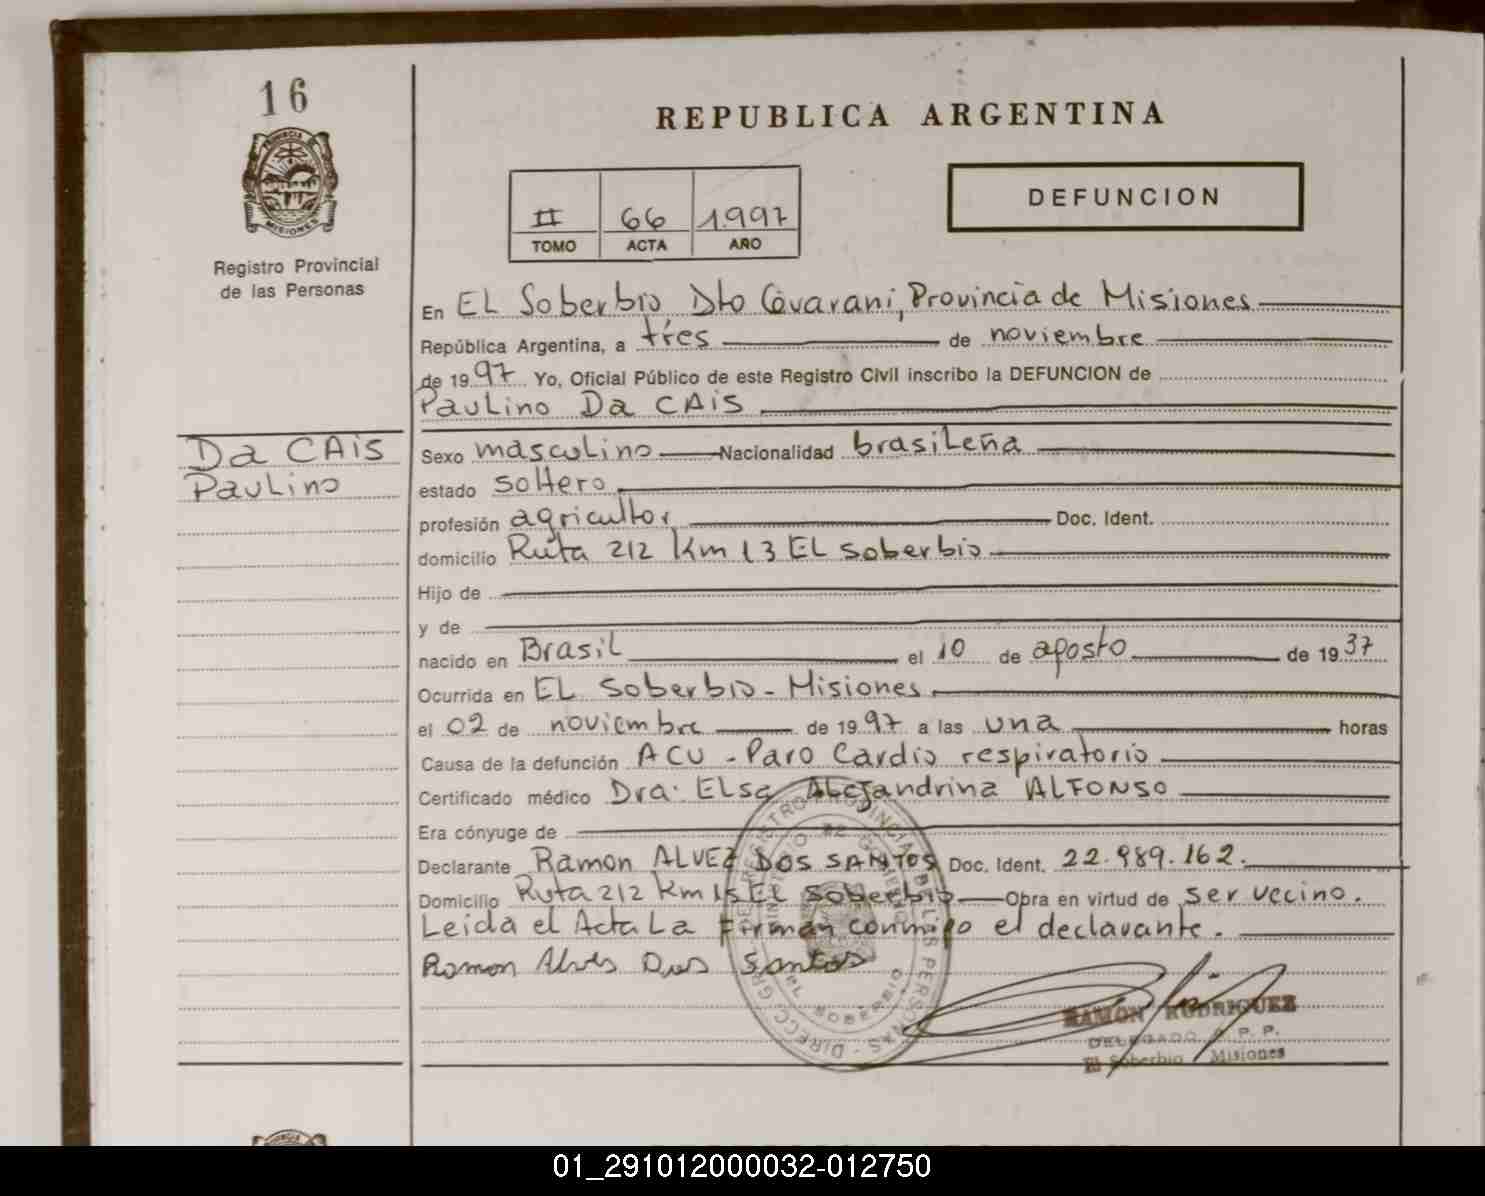 16
MISIONES
Registro Provincial
de las Personas
Da CAiS
Paulino
REPUBLICA ARGENTINA
II 66 1.997
TOMO ACTA AÑO
DEFUNCION
En EL Soberbio Dto Guarani, Provincia de Misiones
República Argentina, a tres de noviembre
de 1997 Yo, Oficial Público de este Registro Civil inscribo la DEFUNCION de
Paulino Da CAiS
Sexo masculino Nacionalidad brasileña
estado soltero
profesión agricultor Doc. Ident.
domicilio Ruta 212 Km 13 EL soberbio
Hijo de
y de
nacido en Brasil el 10 de agosto de 1937
Ocurrida en EL Soberbio - Misiones
el 02 de noviembre de 1997 a las una horas
Causa de la defunción ACV - Paro Cardio respiratorio
Certificado médico Dra: Elsa Alejandrina ALFONSO
Era cónyuge de
Declarante Ramon ALVEZ DOS SANTOS Doc. Ident. 22.989.162.
Domicilio Ruta 212 Km 15 EL Soberbio Obra en virtud de ser vecino.
Leida el Acta La Firman conmigo el declarante.
Ramon Alves Dos Santos
RAMON RODRIGUEZ
DELEGADO R. P. P.
El Soberbio Misiones
01_291012000032-012750